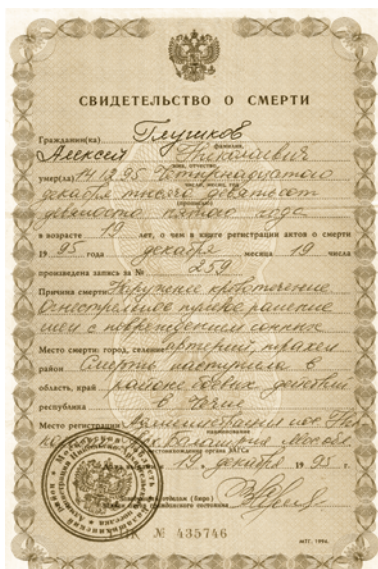 СВИДЕТЕЛЬСТВО О СМЕРТИ
Гражданин(ка) Глушков
фамилия,
Алексей Николаевич
имя, отчество,
умер(ла) 14.12.95 Четырнадцатого
число, месяц, год
декабря тысяча девятьсот
(прописью)
девяносто пятого года
в возрасте 19 лет, о чем в книге регистрации актов о смерти
19 95 года декабря месяца 19 числа
произведена запись за № 259
Причина смерти: Наружное кровотечение
Огнестрельное пулевое ранение
шеи с повреждением сонных
Место смерти: город, селение артерий, трахеи
район Смерть наступила в
область, край районе боевых действий
республика в Чечне
Место регистрации Администрация пос.
наименование
Балашихи Москов.
местонахождение органа ЗАГСа
19 декабря 19 95 г.
№ 435746
МТГ. 1994.